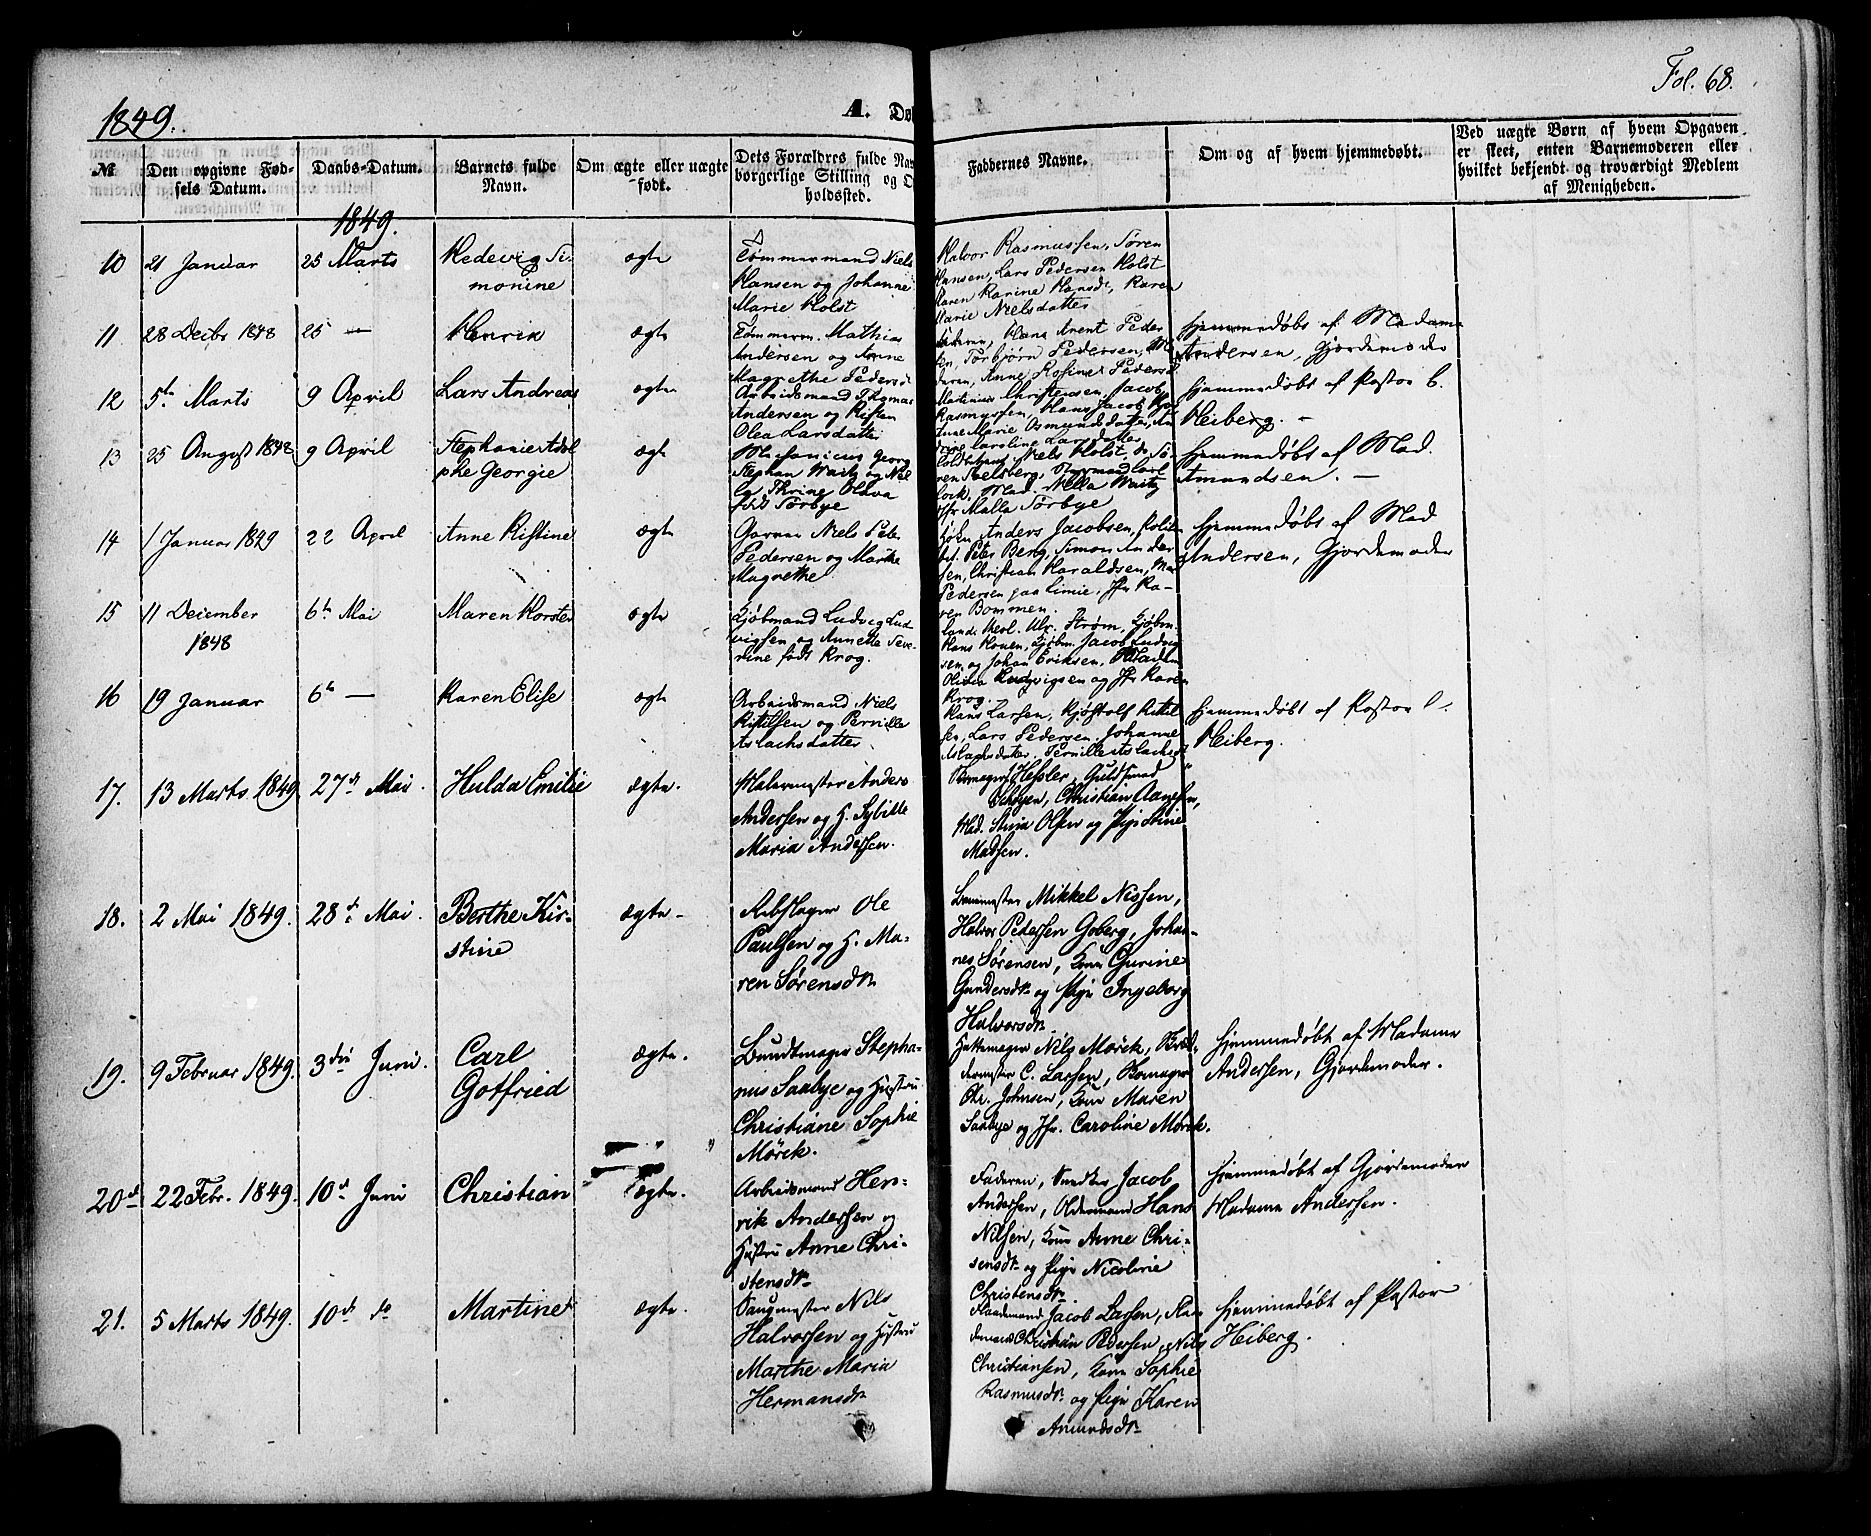 Fol. 68.
1849.
A. Dø
№
Den opgivne Fød-
sels Datum.
Daabs-Datum.
Barnets fulde
Navn.
Om ægte eller uægte
født.
Dets Forældres fulde Nav
borgerlige Stilling og O
holdssted.
Faddernes Navne.
Om og af hvem hjemmedøbt.
Ved uægte Børn af hvem Opgaven
er skeet, enten Barnemoderen eller
hvilket bekjendt og troværdigt Medlem
af Menigheden.
1849.
10
21 Januar
25 Marts
Hedevig Si-
monine
ægte
Tømmermand Niels
Hansen og Johanne
Marie Holst
Halvor Rasmussen, Søren
Hansen, Lars Pedersen Holst
Maren Karine Hansdr, Karen
Marie Nielsdatter
11
28 Decbr 1848
25 —
Henrik
ægte
Tømmerm. Mathias
Andersen og Anne
Magrethe Pedersd
Faderen, Hans Arent Peder
sen, Torbjørn Pedersen, Mo
deren, Anne Rosine Pedersd
Hjemmedøbt af Madame
Andersen, Gjordemoder
12
5te Marts
9 April
Lars Andreas
ægte
Arbeidsmand Thomas
Andersen og Kisten
Olea Larsdatter
Mathias Christensen, Jacob
Rasmussen, Hans Jacob
Anne Marie Osmundsdatter, An
Caroline Larsdatter
Hjemmedøbt af Pastor C.
Heiberg. —
13
25 August 1848
9 April
Stephanie Adol
phe Georgie
ægte
Mechanicus Georg
Stephan Waitz og Niel
Thrine Olava
født Torbye
Niels Holst, Sø
ren Selsberg, Styrmand Carl
Mad. Nella Waitz
Jfr Malla Torbye
Hjemmedøbt af Mad.
Amundsen. —
14
1 Januar 1849
22 April
Anne Kistine
ægte
Garver Niels Peter
Pedersen og Marthe
Magrethe
Anders Jacobsen, Politi
bet. Peter Berg, Simon Ander
sen, Christian Haraldsen, Mar
Pedersen paa Limie, Jfr Ka-
ren Bommen.
Hjemmedøbt af Mad
Andersen, Gjordemoder
15
11 December
1848
6te Mai
Maren Horster
ægte
Kjøbmand Ludvig Lud
vigsen og Annette Seve-
rine født Krog.
Cand. theol. Ulr. Strøm, Kjøbm.
Hans Houen, Kjøbm. Jacob Ludvig
sen og Johan Eriksen, Madam
Olivia Ludvigsen og Jfr Karen
Krog
16
19 Januar
6te —
Karen Elise
ægte
Arbeidsmand Niels
Kittilsen og Pernille
Aslachsdatter
Hans Larsen, Kjøstolf Kittil
sen, Lars Pedersen, Johanne
Aslagsdatter, Pernille Aslachsd
Hjemmedøbt af Pastor C.
Heiberg.
17.
13 Marts 1849.
27de Mai.
Hulda Emilie
ægte.
Malermester Anders
Andersen og H. Sybille
Maria Andersen.
Hesler, Guldsmed
Schøyen, Christian Aanesen,
Mad. Stina Olsen og Pige Stine
Madsen.
18.
2 Mai 1849.
28de Mai.
Berthe Kir-
stine
ægte.
Rebslager Ole
Paulsen og H. Ma-
ren Sørensdr
Mikkel Nissen,
Halvor Pedersen Goberg, Johan-
nes Sørensen, Kone Gurine
Gundersdr og Pige Ingeborg
Halvorsdr
19.
9 Februar 1849.
3die Juni.
Carl
Gotfried
ægte.
Bundtmager Stepha-
nus Saabye og Hustru
Christiane Sophie
Mørck.
Hattemager Nils Mørck,
C. Larsen,
Chr. Johnsen, Kone Maren
Saabye og Jfr. Caroline Mørck.
Hjemmedøbt af Madame
Andersen, Gjordemoder.
20de
22 Febr. 1849.
10de Juni
Christian
ægte.
Arbeidsmand Hen-
rik Andersen og
Hustru Anne Chri-
stensdr
Faderen, Smed Jacob
Andersen, Oldermand Hans
Nilsen, Kone Anne Chri-
stensdr og Pige Nicoline
Christensdr.
Hjemmedøbt af Gjordemoder
Madame Andersen.
21.
5 Marts 1849.
10de do
Martine
ægte.
Saugmester Nils
Halvorsen og Hustru
Marthe Maria
Hermansdr
Jacob Larsen,
Christian Pedersen, Nils
Christiansen, Kone Sophie
Rasmusdr og Pige Karen
Amundsdr
Hjemmedøbt af Pastor
Heiberg.